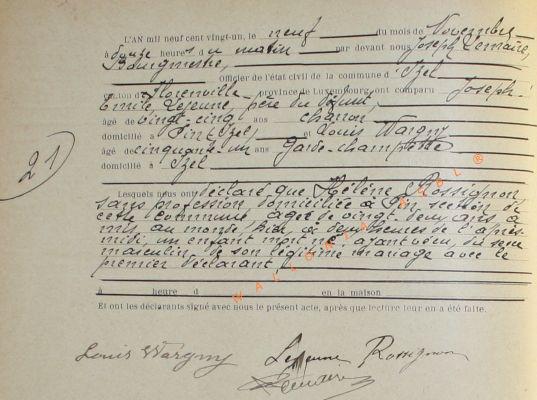 L'AN mil neuf cent vingt-un, le neuf du mois de Novembre
à heures du matin par devant nous Joseph Lemaire,
Bourgmestre,
Officier de l'état civil de la commune d'Izel
canton de Florenville province de Luxembourg ont comparu Joseph
Emile Lejeune, père du
âgé de vingt-cinq ans
domicilié à Pin, Izel, et Louis Wargny
âgé de cinquante un ans Garde-champêtre
domicilié à Izel
21
Lesquels nous ont déclaré que Hélène Rossignon,
sans profession, domiciliée à Pin, section de
cette commune âgée de vingt deux ans a
mis au monde, hier, à deux heures de l'après-
midi, un enfant mort né ayant vécu, du sexe
masculin, de son légitime mariage avec le
premier déclarant,
à heure d en la maison
Et ont les déclarants signé avec nous le présent acte, après que lecture leur en a été faite.
Louis Wargny Lejeune Rossignon
Lemaire